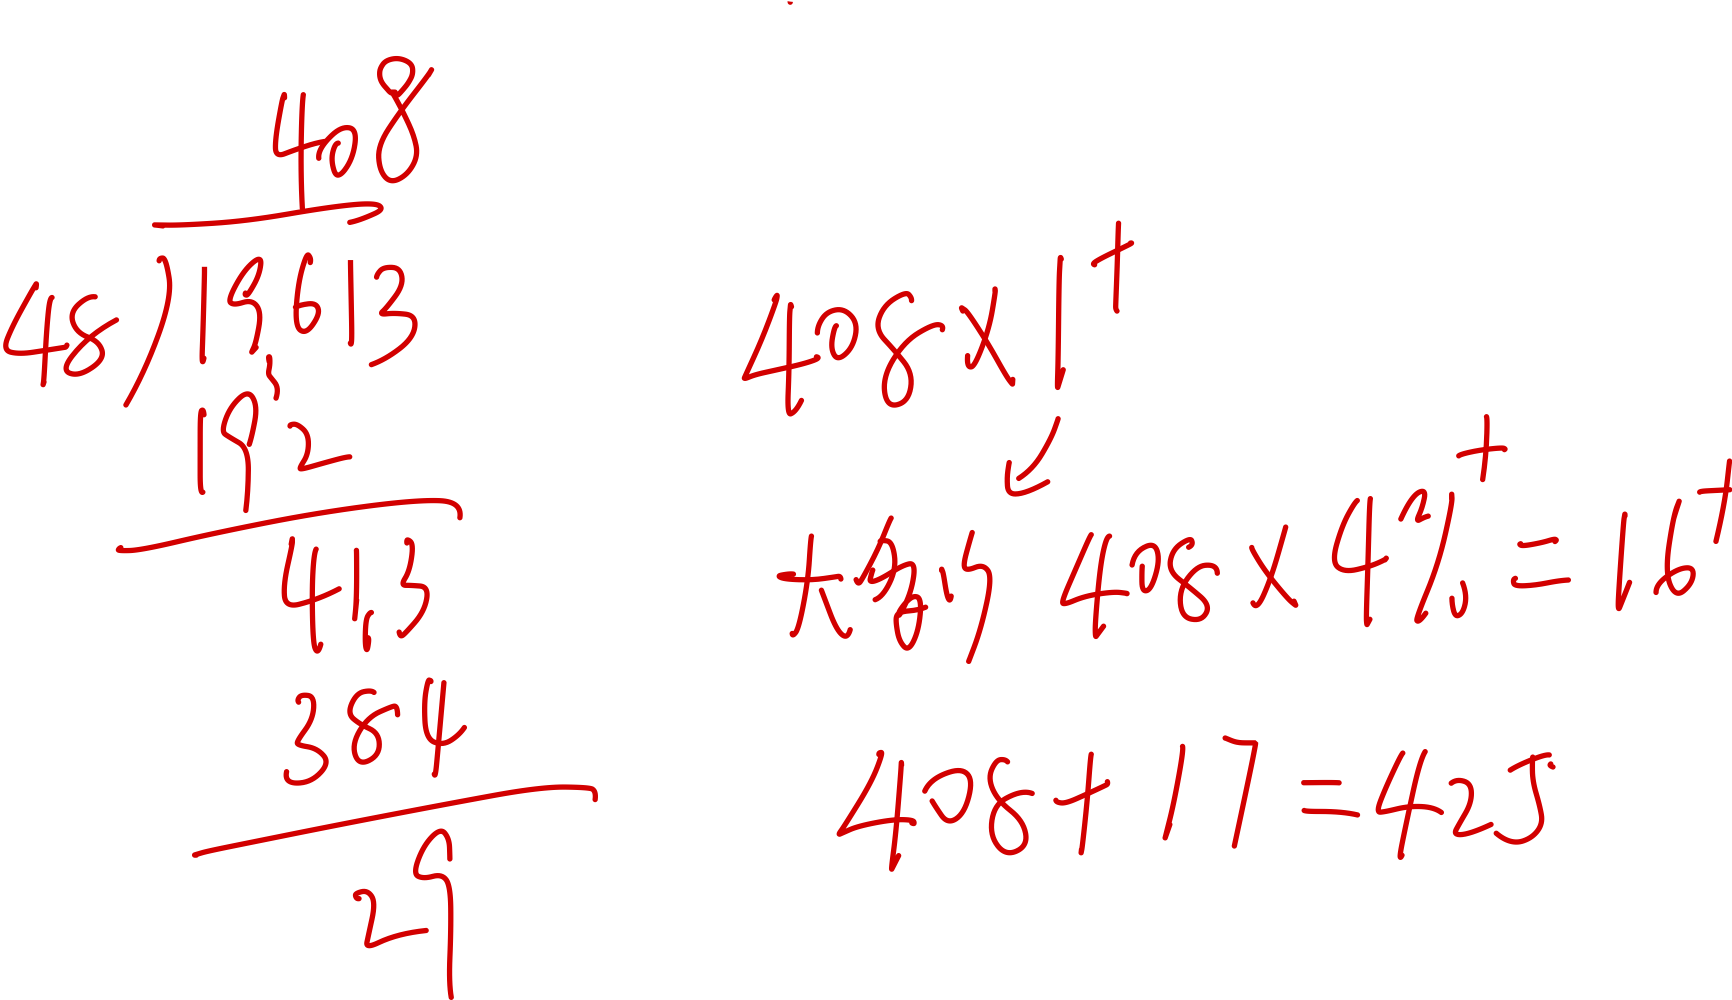 408
48)19613
192
413
384
29
408×1⁺
大多少 408×4%⁺=16⁺
408+17=425